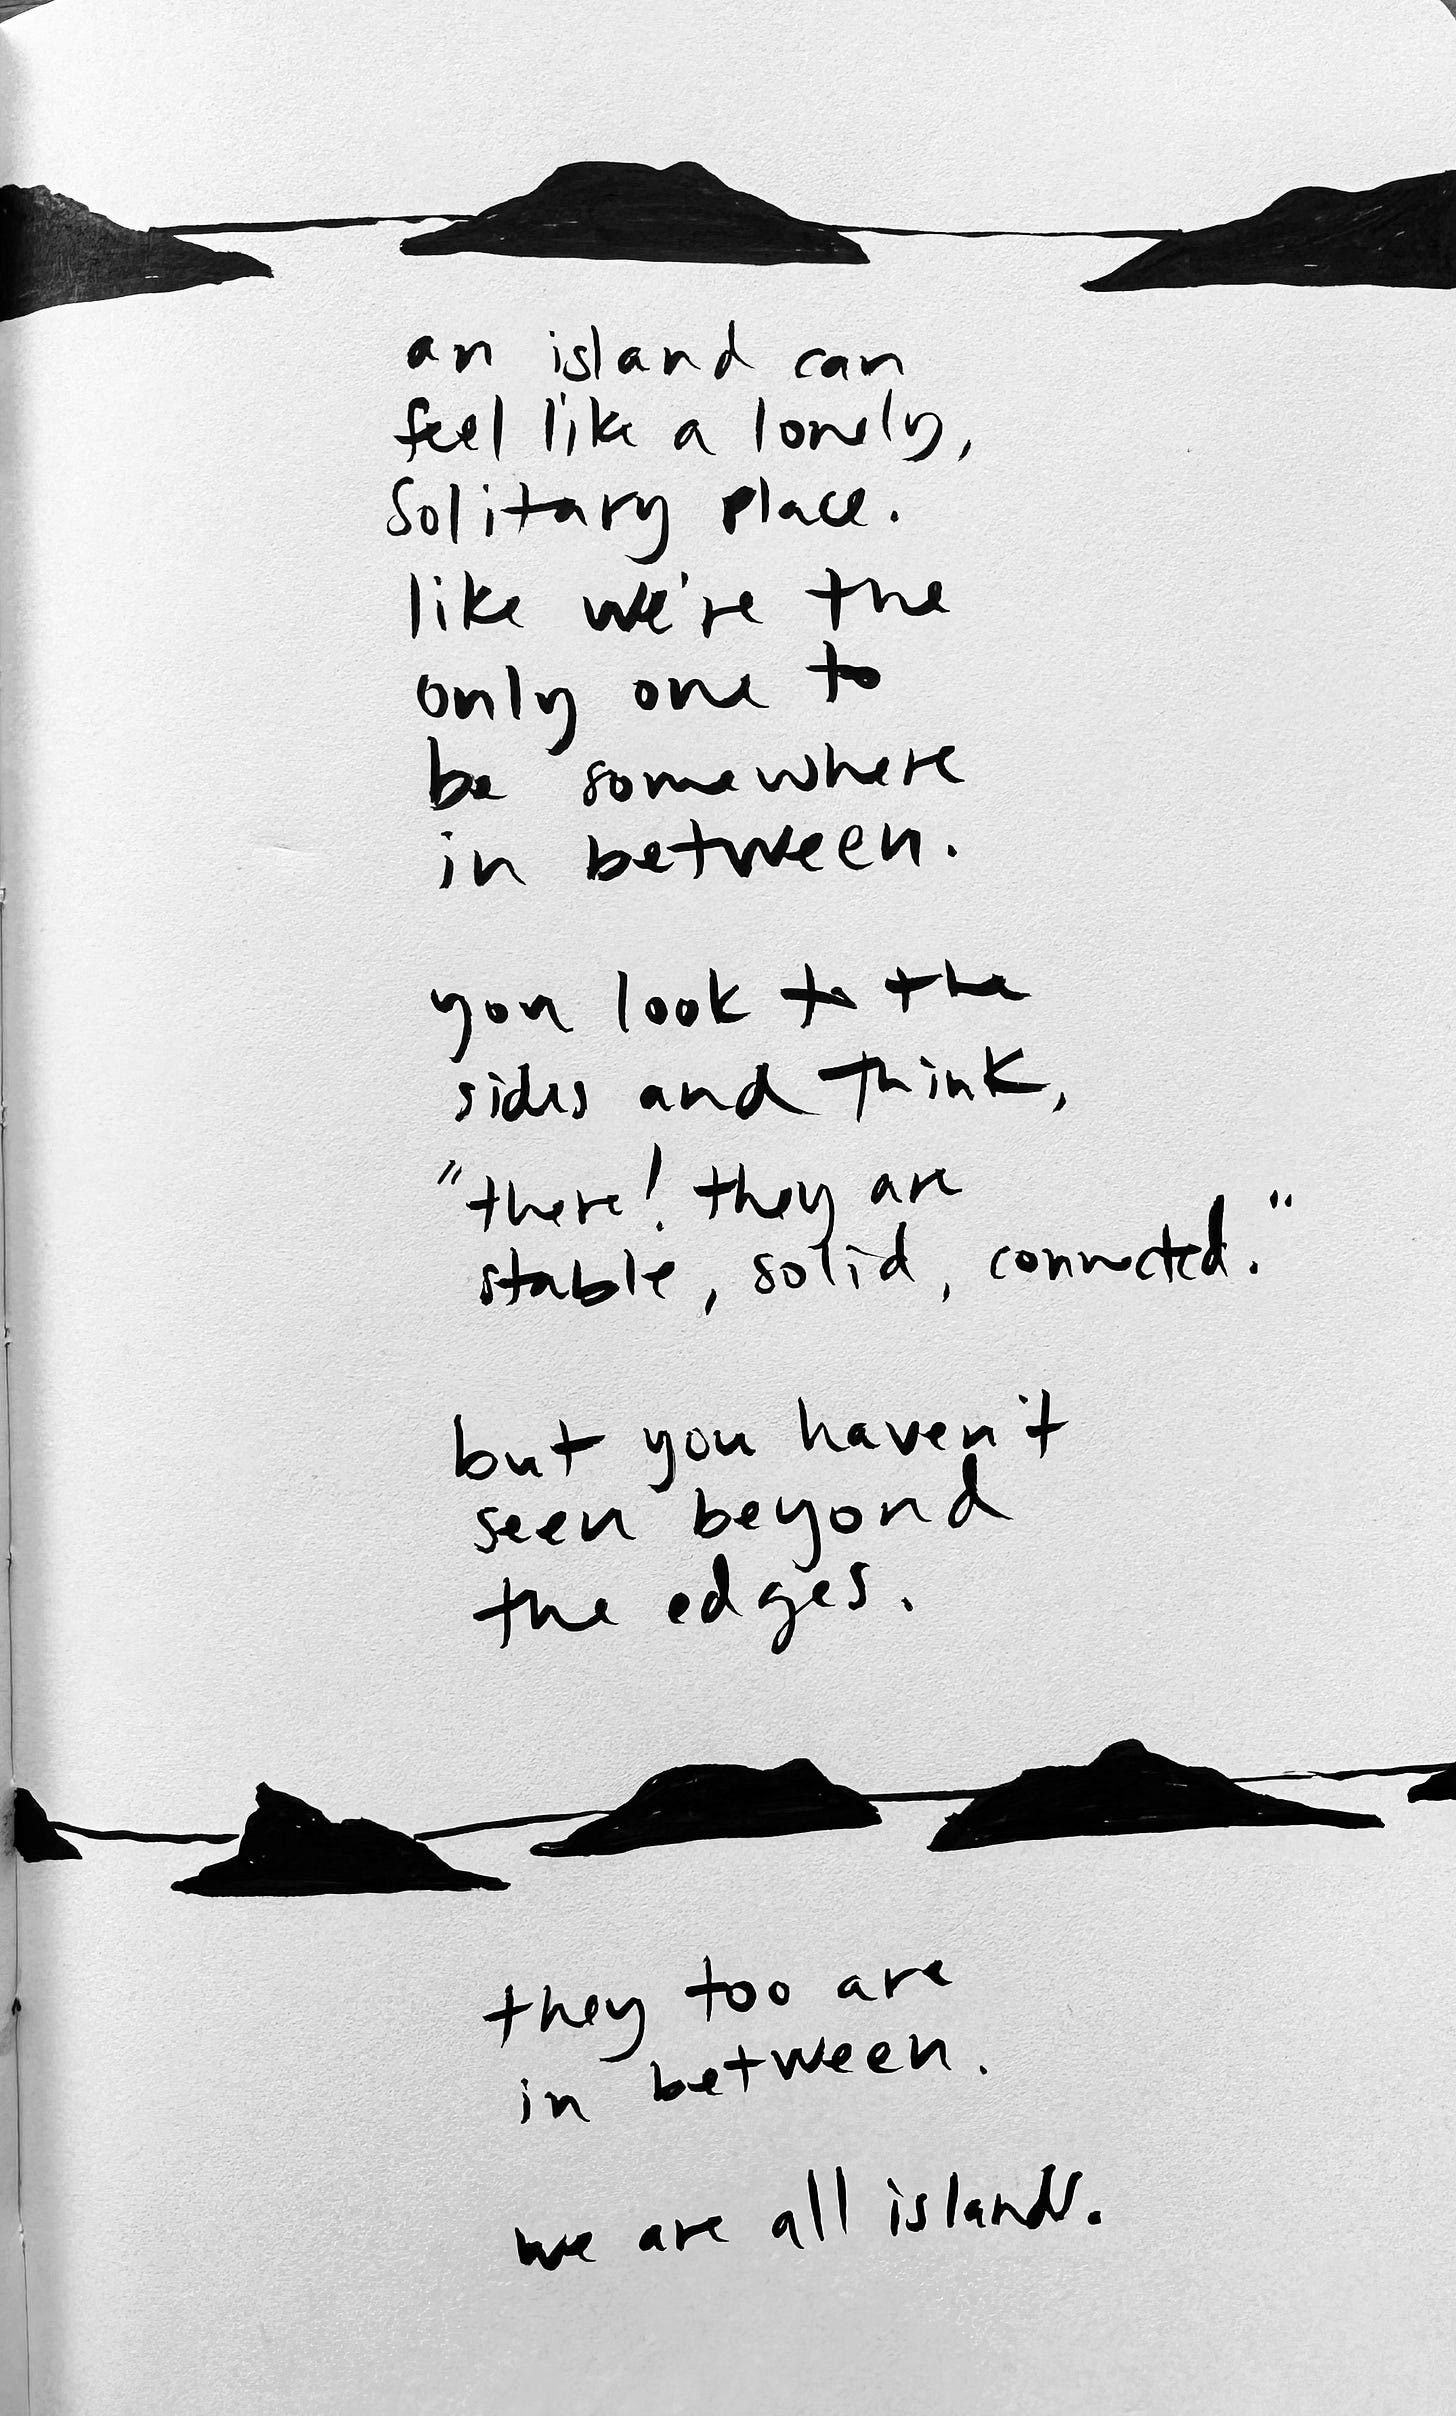 an island can
feel like a lonely,
solitary place.
like we're the
only one to
be somewhere
in between.
you look to the
sides and think,
"there! they are
stable, solid, connected."
but you haven't
seen beyond
the edges.
they too are
in between.
we are all islands.